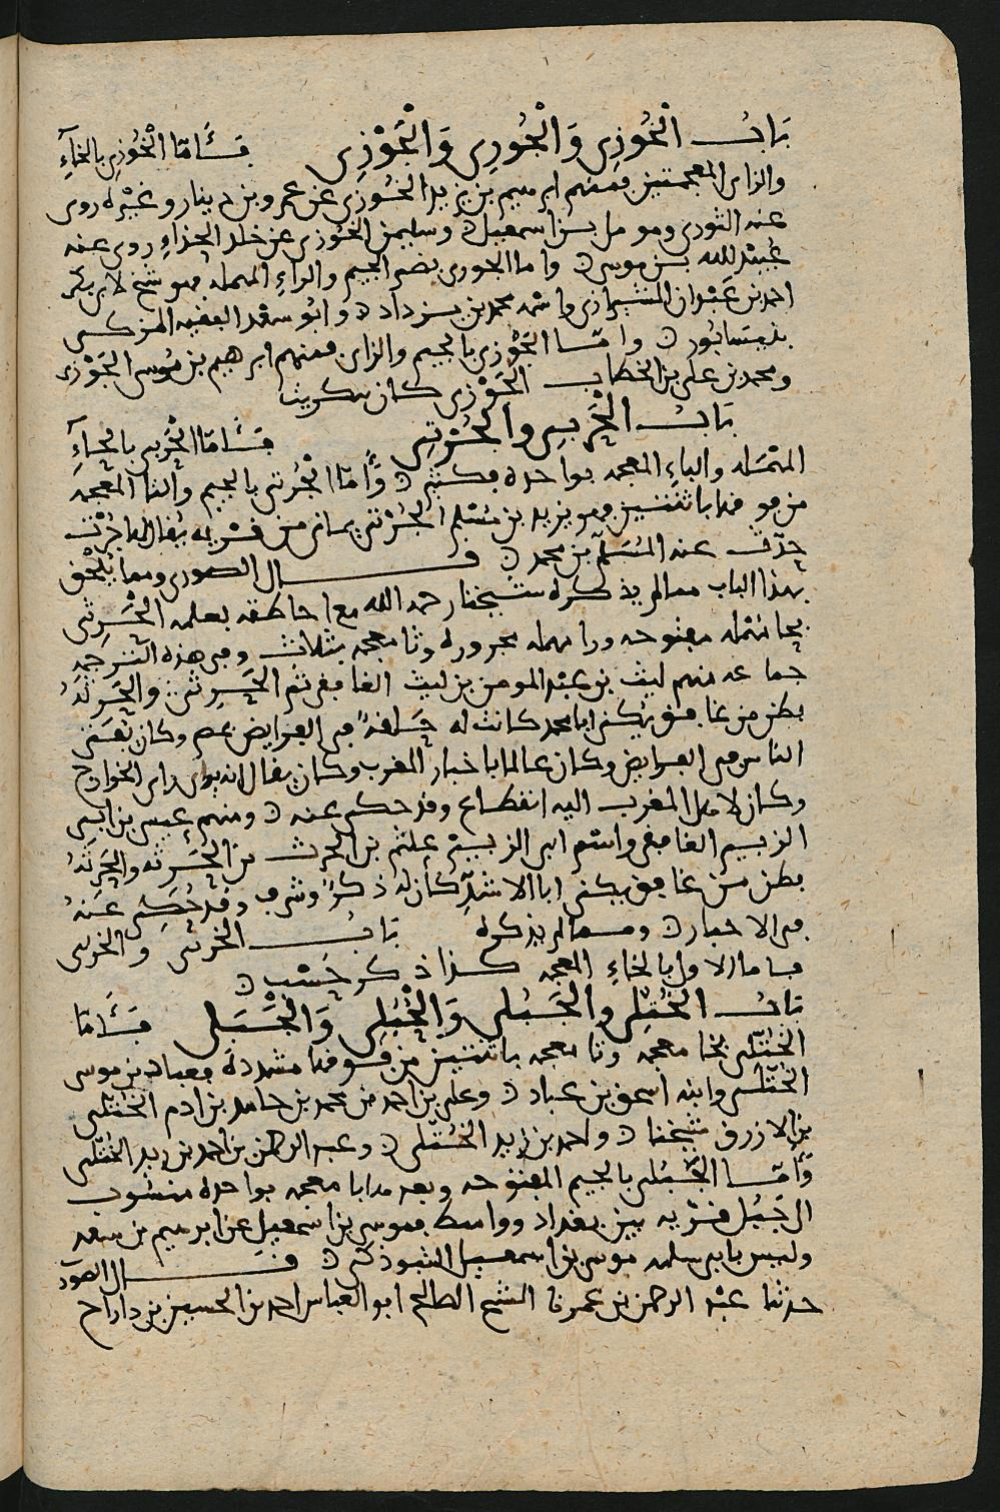 باب الْخُوزِي وَالْجُورِي وَالْجَوْزِي فأما الْخُوزي بالخاءِ
والزاى المعجمتين فمنهم ابرهيم بن يزيد الخُوزي عن عمرو بن دينار وغيره روى
عنه الثورى ومومل بن اسمعيل وسليمن الخوزى عن خلد الحذاءِ روى عنه
عُبيْد الله بن موسى واما الجورى بضم الجيم والراءِ المهمله فهو شيخ لابى بكر
احمد بن عَبْدان الشيرازى واسمه محمد بن يزداد وابُو سعْد الفقيه المزكى
بنيسَابُور وامّا الجَوْزى بالجيم والزاى فمنهم ابرهيم بن مُوسى الجَوْزى
ومحمد بن على بن الخطاب الجَوْزى كان بتكريت
باب الْحَرْبى والْجُرْتى فأَمّا الْحَرْبى بالحاءِ
المهْمَله والباءِ المعجمه بواحده فكثير وأَمّا الْجُرْتى بالجيم والتاءِ المعجمه
من فوقها باثنتين فهو يزيد بن مُسْلم الجُرْتى يمانى من قرْيه يُقال لها جُرْت
حدّث عنه المُسَلَّم بن محمد قال الصورى ومما يَلْحق
بهذا الباب مما لم يذكره شيخنا رحمه الله مع احاطته بعلمه الْحَرِثى
بحا مهْمله مفتوحه ورا مهمله مجروره وثا معجمه بثلاث وفى هذه الترجمه
جماعه منهم ليث بن عبْد المومن بن ليث الغافقى ثم الحَرِثى والحَرِثَهُ
بطن من غافق يكنى ابا محمد كانت له حَلقهٌ فى الفرايض بمصر وكان يُقسّم
الناس فى الفرايض وكان عالما باخبار المغرب وكان يقال انه يرى راى الخوارج
وكان لاهل المغرب اليه انقطاع وقد حكى عنه ومنهم عيسى بن ابى
الزبير الغافقى واسم ابى الزبير علثم بن الحرث من الحَرِثه والحَرِثهُ
بطن من غافق يكنى ابا الاشدّ كان له ذكرٌ وشرف وقد حُكى عنهُ
فى الاخبار ومما لم يذكره باب الخرثى والحرثى
فاما الاول بالخاءِ المعجمه كذا ذكر حَسْب
باب الخُتَّلى والجَبُّلى وَالْجَبَلى وَالْجِبَلى فأَمّا
الخُتَّلى بخا معجمه وتا معجمه باثنتين من فوقها مشدده فعباد بن موسى
الختلى وابنه اسحق بن عباد وعلى بن احمد بن محمد بن حامد بن ادم الختّلى
بن الازرق شيخنا واحمد بن زيد الخُتلى وعبد الرحمن بن احمد بن زيد الختّلى
وأمّا الجَبُّلى بالجيم المفتوحه وبعدها با معجمه بواحده منسُوب
الى جَبُّل قرْيه بين بغداد وواسط فموسى بن اسمعيل عن ابرهيم بن سعد
وليس بابى سلمه موسى بن اسمعيل التبوذكى قال الصورى
حدثنا عبْد الرحمن بن عمر نا الشيخ الصالح ابو العباس احمد بن الحسين بن داناج